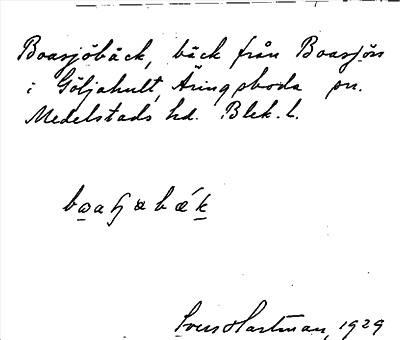 Boasjöbäck, bäck från Boasjön
i Göljahult, Åringsboda sn.
Medelstads hd. Blek. l.
Sven Hartman, 1929